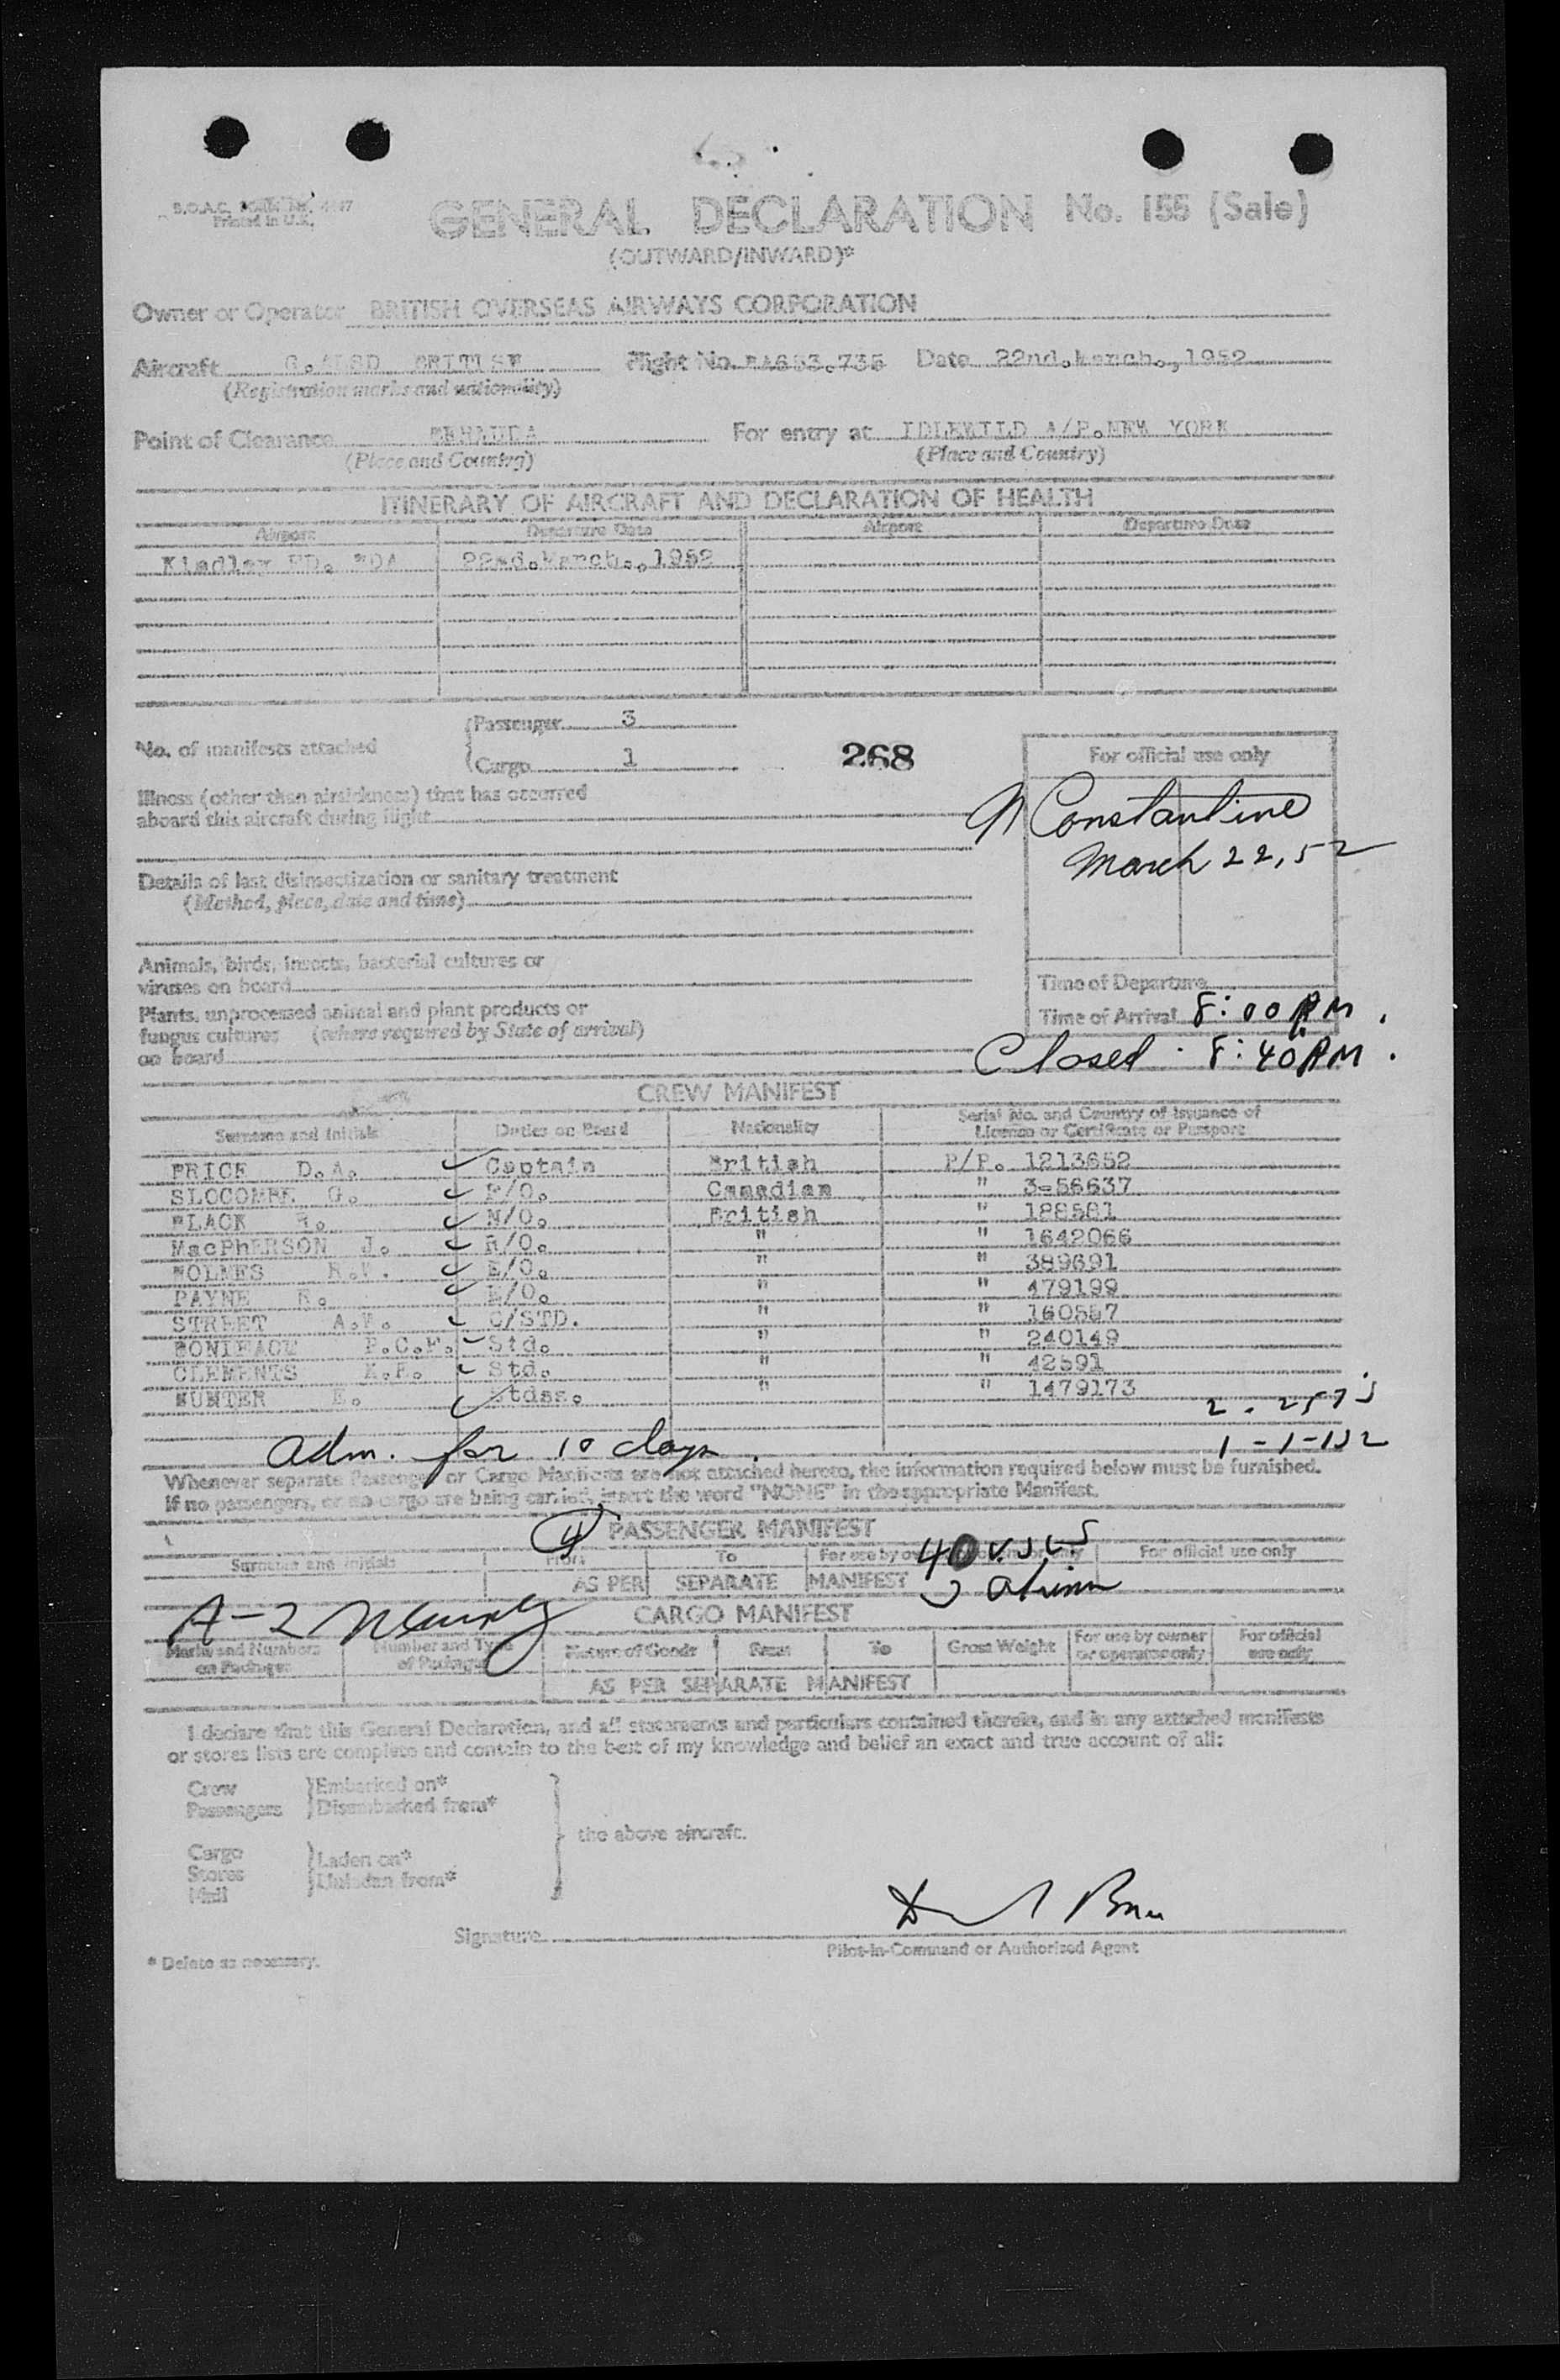 B.O.A.C. FORM No. 4247
Printed in U.K.
GENERAL DECLARATION No. 155 (Sale)
(OUTWARD/INWARD)*
Owner or Operator BRITISH OVERSEAS AIRWAYS CORPORATION
Aircraft BRITISH Flight No. BA653.735 Date 22nd.March.,1952
(Registration marks and nationality)
Point of Clearance BERMUDA For entry at IDLEWILD A/P.NEW YORK
(Place and Country) (Place and Country)
ITINERARY OF AIRCRAFT AND DECLARATION OF HEALTH
Airport Departure Date Airport Departure Date
Kindley FD. BDA 22nd.March.,1952
Passenger 3
No. of manifests attached
Cargo 1
268
For official use only
Illness (other than airsickness) that has occurred
aboard this aircraft during flight
N Constantine
March 22, 52
Details of last disinsectization or sanitary treatment
(Method, place, date and time)
Animals, birds, insects, bacterial cultures or
viruses on board
Time of Departure
Plants, unprocessed animal and plant products or
fungus cultures (where required by State of arrival)
on board
Time of Arrival 8:00 PM.
Closed - 8:40 PM.
CREW MANIFEST
Surname and Initials Duties on Board Nationality Serial No. and Country of Issuance of Licence or Certificate or Passport
PRICE D.A. Captain British P/P. 1213652
SLOCOMBE G. F/O. Canadian " 3-56637
BLACK N/O. British " 188581
MacPHERSON J. R/O. " " 1642066
HOLMES E/O. " " 389691
PAYNE R. E/O. " " 479199
STREET A.W. C/STD. " " 160557
BONIFACE P.C.F. Std. " " 240149
CLEMENTS Std. " " 42591
HUNTER E. Stdss. " " 1479173
2 - 257's
1 - I-132
adm. for 10 days.
Whenever separate Passenger or Cargo Manifests are not attached hereto, the information required below must be furnished.
If no passengers, or no cargo are being carried, insert the word "NONE" in the appropriate Manifest.
PASSENGER MANIFEST
Surname and Initials From To For use by owner or operator only For official use only
40 USCS
AS PER SEPARATE MANIFEST
A-2
CARGO MANIFEST
Marks and Numbers on Packages Number and Type of Packages Nature of Goods From To Gross Weight For use by owner or operator only For official use only
AS PER SEPARATE MANIFEST
I declare that this General Declaration, and all statements and particulars contained therein, and in any attached manifests
or stores lists are complete and contain to the best of my knowledge and belief an exact and true account of all:
Crew Embarked on*
Passengers Disembarked from*
the above aircraft.
Cargo
Stores Laden on*
Mail Unladen from*
Signature
Pilot-in-Command or Authorised Agent
* Delete as necessary.